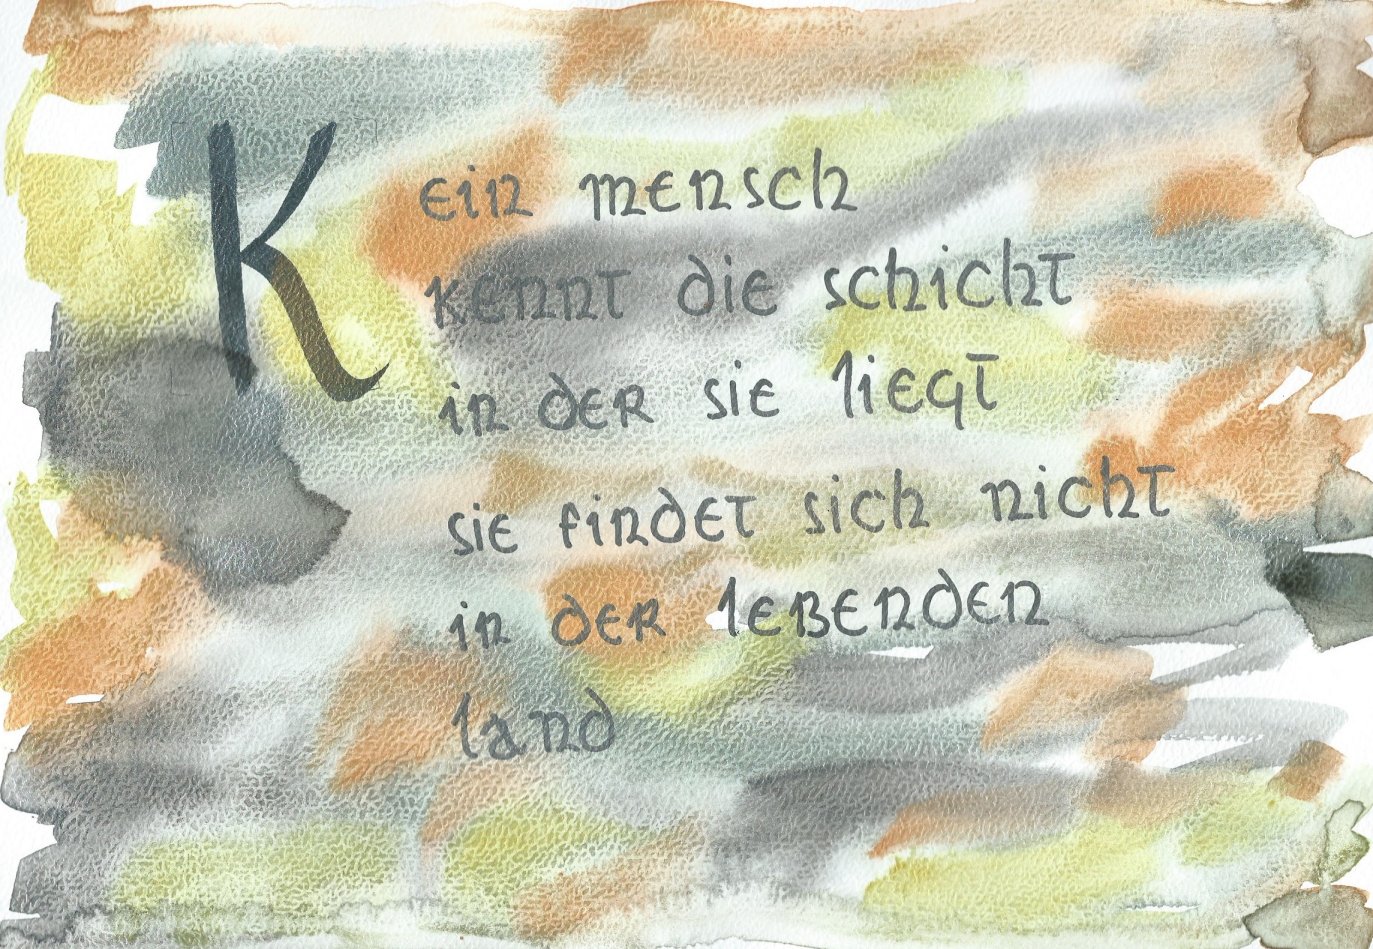 Kein mensch
kennt die schicht
in der sie liegt
sie findet sich nicht
in der lebenden
land